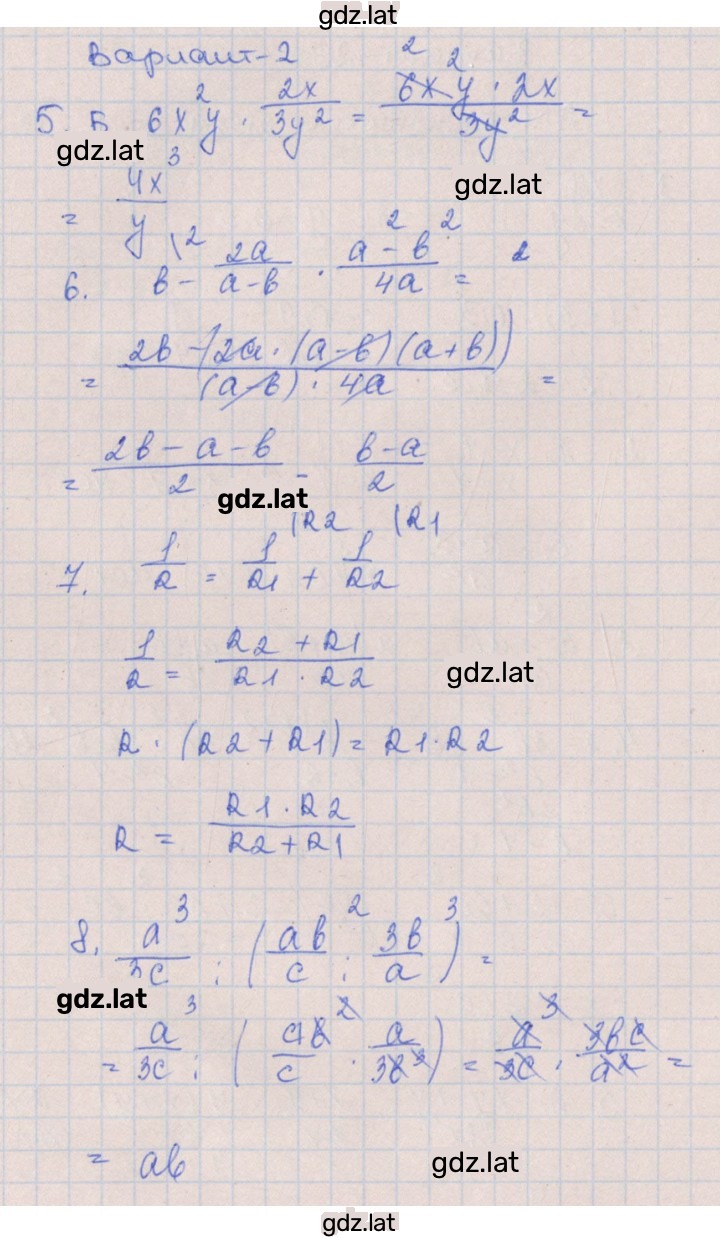 gdz.lat
Вариант-2
5. Б. 6x²y · 2x/3y² = 6x²y · 2x/3y² =
gdz.lat
= 4x³/y
gdz.lat
6. b - 2a/a-b · a²-b²/4a =
= 2b-(2a·(a-b)(a+b))/(a-b)·4a =
= 2b-a-b/2 = b-a/2
gdz.lat
7. 1/R = 1/R1 + 1/R2
1/R = R2+R1/R1·R2
gdz.lat
R·(R2+R1)=R1·R2
R = R1·R2/R2+R1
8. a³/3c : (ab²/c : 3b³/a) =
gdz.lat
= a³/3c : (ab²/c · a/3b³) = a³/3c · 3bc/a² =
= ab
gdz.lat
gdz.lat